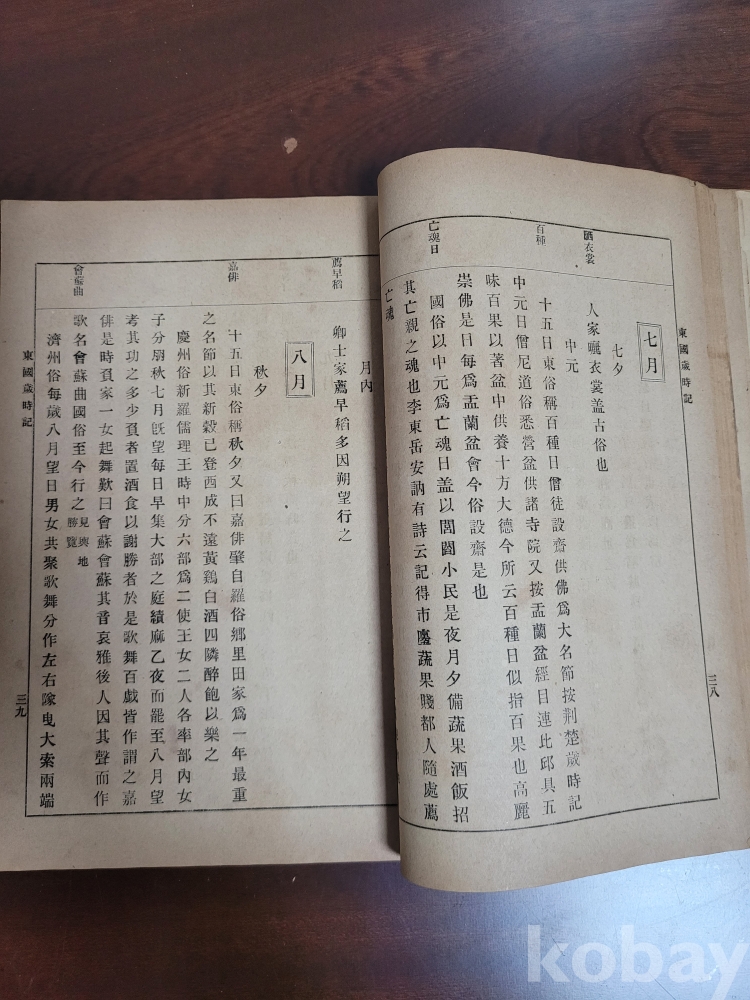 東國歲時記
三八
七月
七夕
曬衣裳
人家曬衣裳盖古俗也
中元
百種
十五日東俗稱百種日僧徒設齋供佛爲大名節按荆楚歲時記
中元日僧尼道俗悉營盆供諸寺院又按盂蘭盆經目連比邱具五
味百果以著盆中供養十方大德今所云百種日似指百果也高麗
崇佛是日每爲盂蘭盆會今俗設齋是也
亡魂日
國俗以中元爲亡魂日盖以閭閻小民是夜月夕備蔬果酒飯招
其亡親之魂也李東岳安訥有詩云記得市廛蔬果賤都人隨處薦
亡魂
月內
薦早稻
卿士家薦早稻多因朔望行之
八月
秋夕
嘉俳
十五日東俗稱秋夕又曰嘉俳肇自羅俗鄉里田家爲一年最重
之名節以其新穀已登西成不遠黃鷄白酒四隣醉飽以樂之
慶州俗新羅儒理王時中分六部爲二使王女二人各率部內女
子分朋秋七月旣望每日早集大部之庭績麻乙夜而罷至八月望
考其功之多少負者置酒食以謝勝者於是歌舞百戲皆作謂之嘉
俳是時負家一女起舞歎曰會蘇會蘇其音哀雅後人因其聲而作
會蘇曲
歌名會蘇曲國俗至今行之見輿地勝覽
濟州俗每歲八月望日男女共聚歌舞分作左右隊曳大索兩端
東國歲時記
三九
kobay